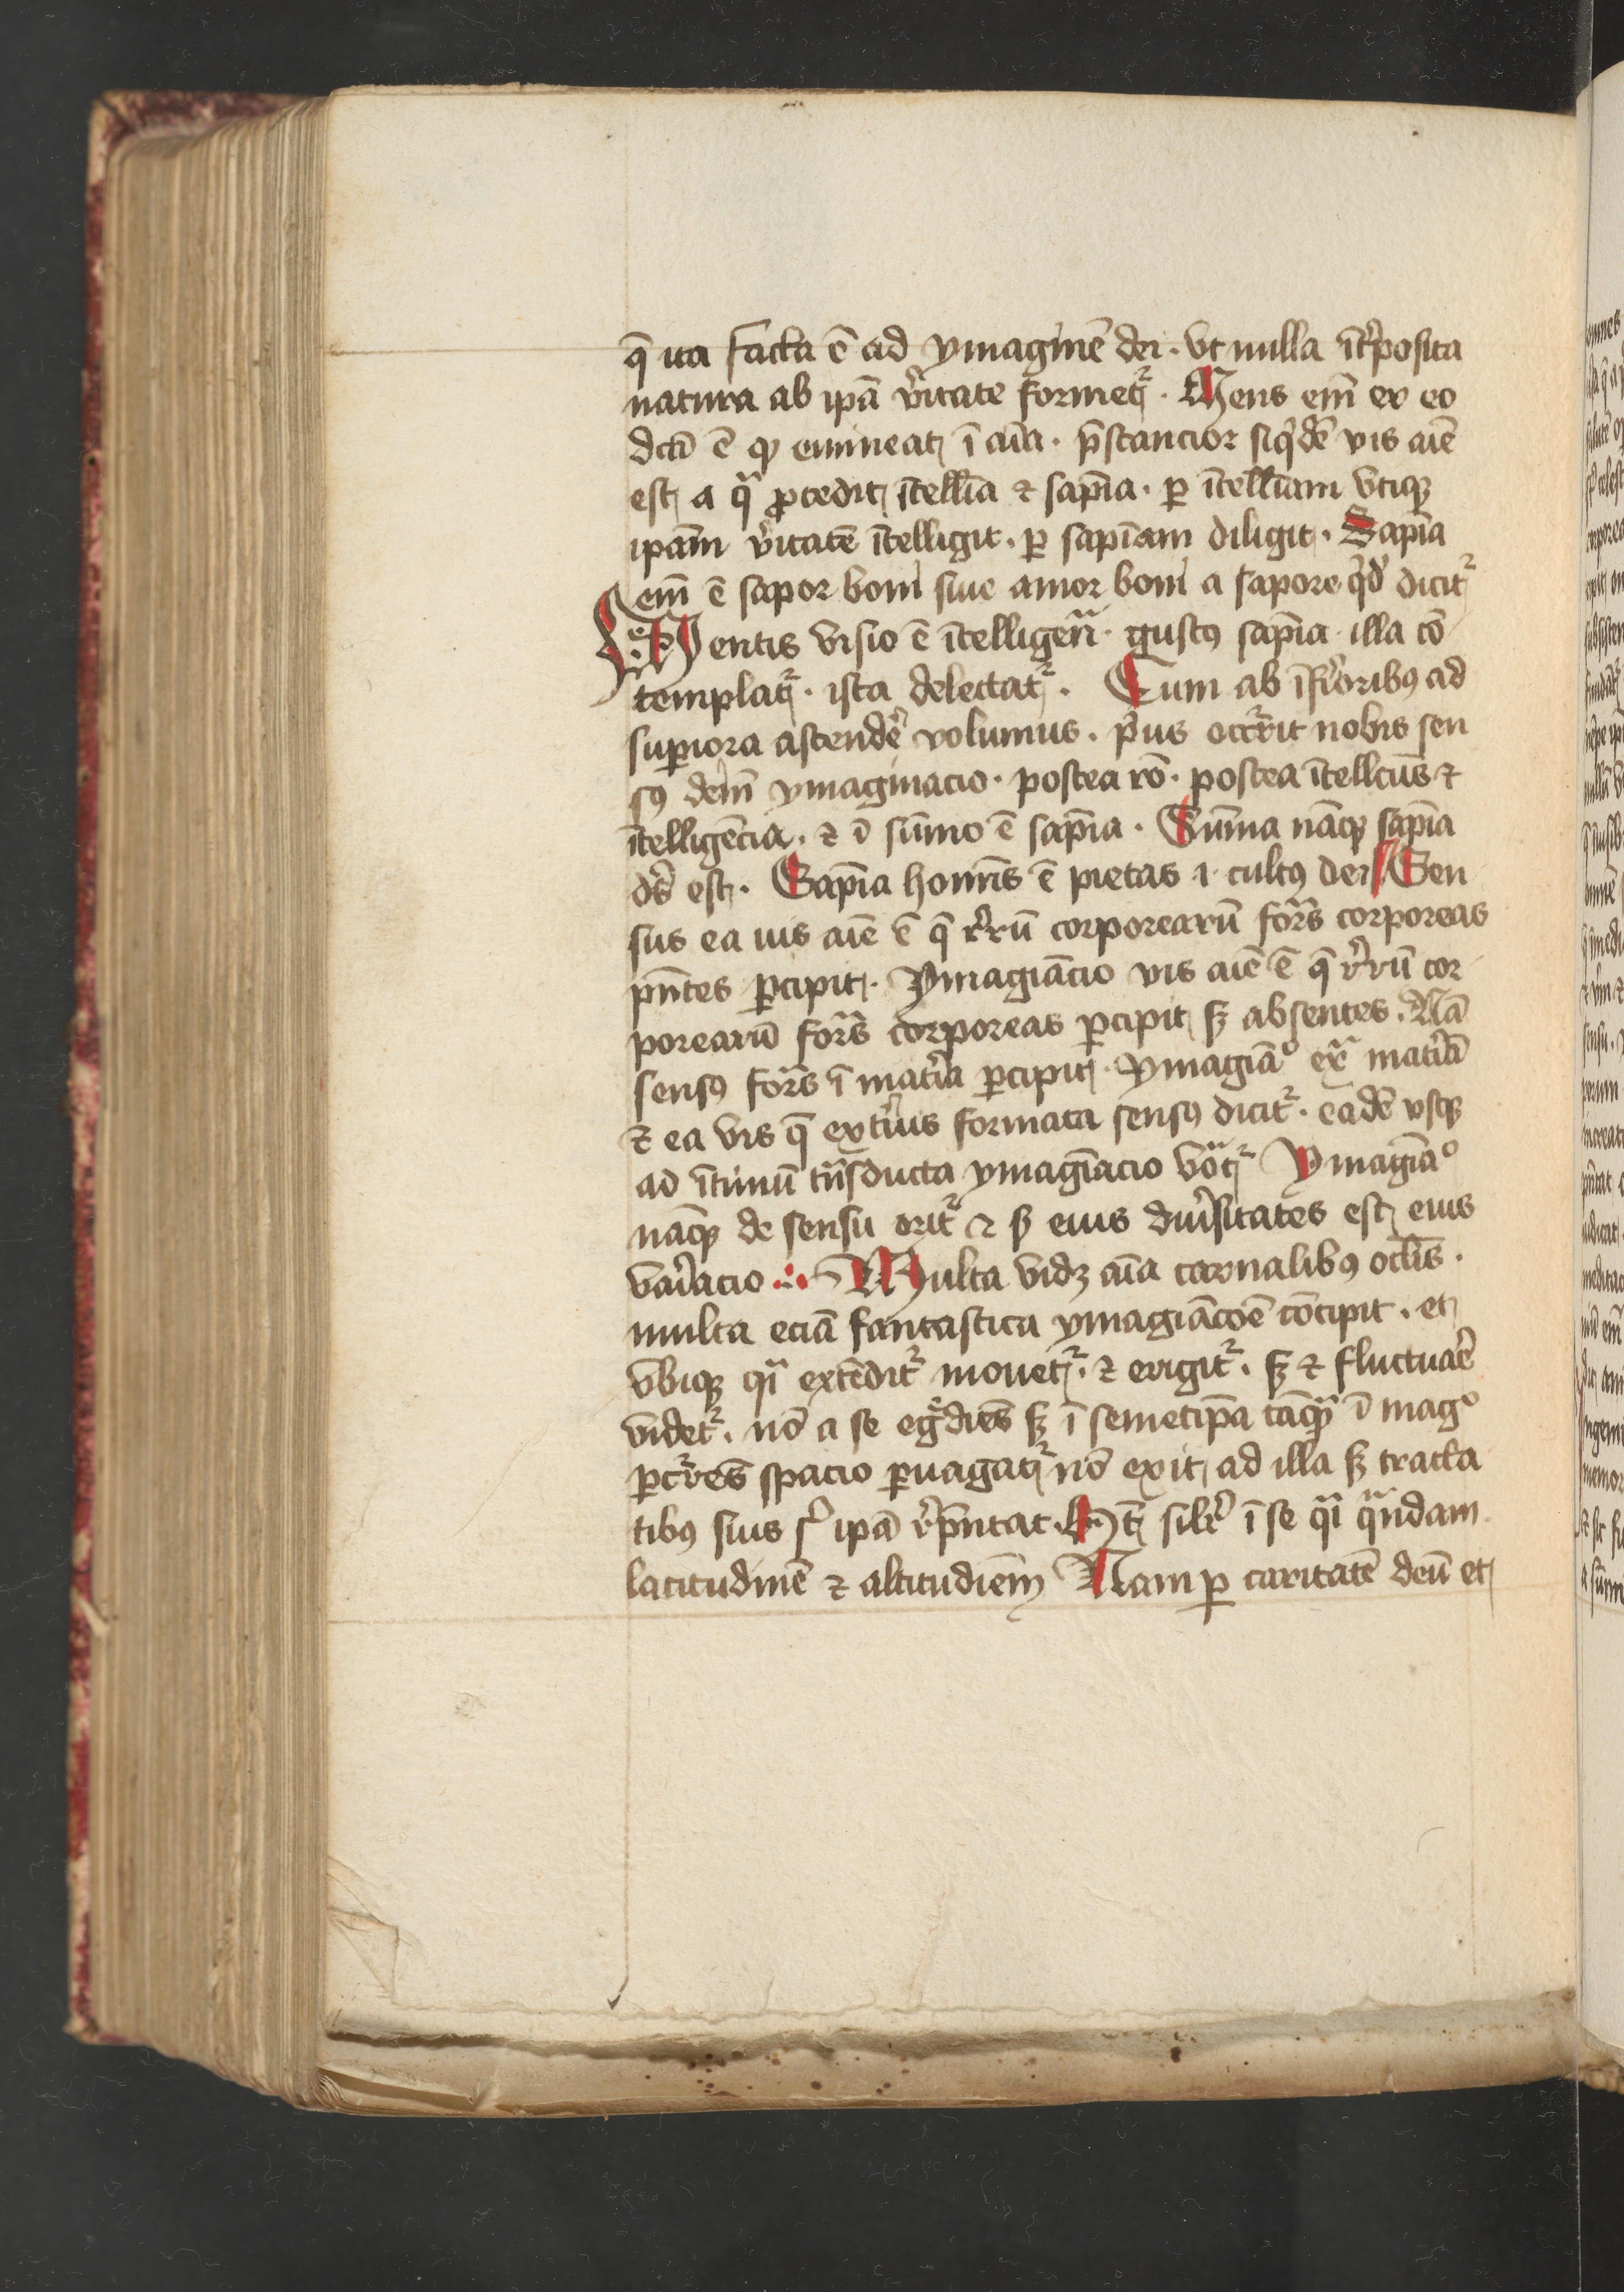 q̄ ita facta ē ad ymaginē dei · vt nulla īt᷑posita
natura ab ipā v᷑itate formet᷑ · Mens em̄ ex eo
dcā ē ꝙ emineat ī aīa · p̄stancior siqⁱdē vis aīe
est a qᵃ ꝓcedit ītellīa ⁊ sapīa · ꝑ ītellīam vtiqꝫ
ipam̄ v᷑itatē ītelligit · ꝑ sapīam diligit · Sapīa
em̄ ē sapor boni siue amor boni a sapore qⁱd᷑ dicit᷑
Mentis visio ē ītelligen̄ᵃ · gustꝯ sapīa · illa cō
templat᷑ · ista delectat᷑ · Cum ab īf᷑ioribꝯ ad
suꝑiora ascende᷑ volumus · pⁱus occ᷑rit nobis sen
sꝯ dein̄ ymaginacio · postea rō · postea ītellcūs ⁊
ītelligēcia · ⁊ ī sūmo ē sapīa · Sūma nāqꝫ sapīa
ds̄ est · Sapīa homīs ē pietas ı · cultꝯ dei Sen
sus ea uis aīe ē q̄ r᷑rū corporearū forᵃs corporeas
pn̄tes ꝑcipit · Ymagiācio vis aīe ē q̄ r᷑rū cor
porearū forᵃs corporeas ꝑcipit sꝫ absentes · Nā
sensꝯ forᵃs ī mat᷑ia ꝑcipit · ymagiāᵒ exᵃ mat᷑iā
⁊ ea vis q̄ ext᷑ius formata sensꝯ dicit᷑ · eadē vsqꝫ
ad ītimū tᵃnsducta ymagīacio vocᵃt᷑ Ymagīaᵒ
nāqꝫ de sensu orit᷑ ⁊ ẜ eius diu᷑sitates est eius
vaⁱacio ∴ Multa vidꝫ aīa carnalibꝯ oclīs ·
multa eciā fantastica ymagiācōe cōcipit · et
vbiqꝫ qᵃi extēdit᷑ mouet᷑ · ⁊ erigit᷑ · sꝫ ⁊ fluctua᷑e
videt᷑ · nō a se eg᷑diēs sꝫ ī semetip̄a tāqᵃꝫ ī magᵒ
ꝑc᷑rēs spacio ꝑuagat᷑ nō exit ad illa sꝫ tracta
tibꝯ suis sⁱ ipā r᷑pn̄tat · Hꝫ silr᷑ ī se qᵃi qᵃndam
latitudinē ⁊ altitudiem̄ Nam ꝑ caritatē deū et